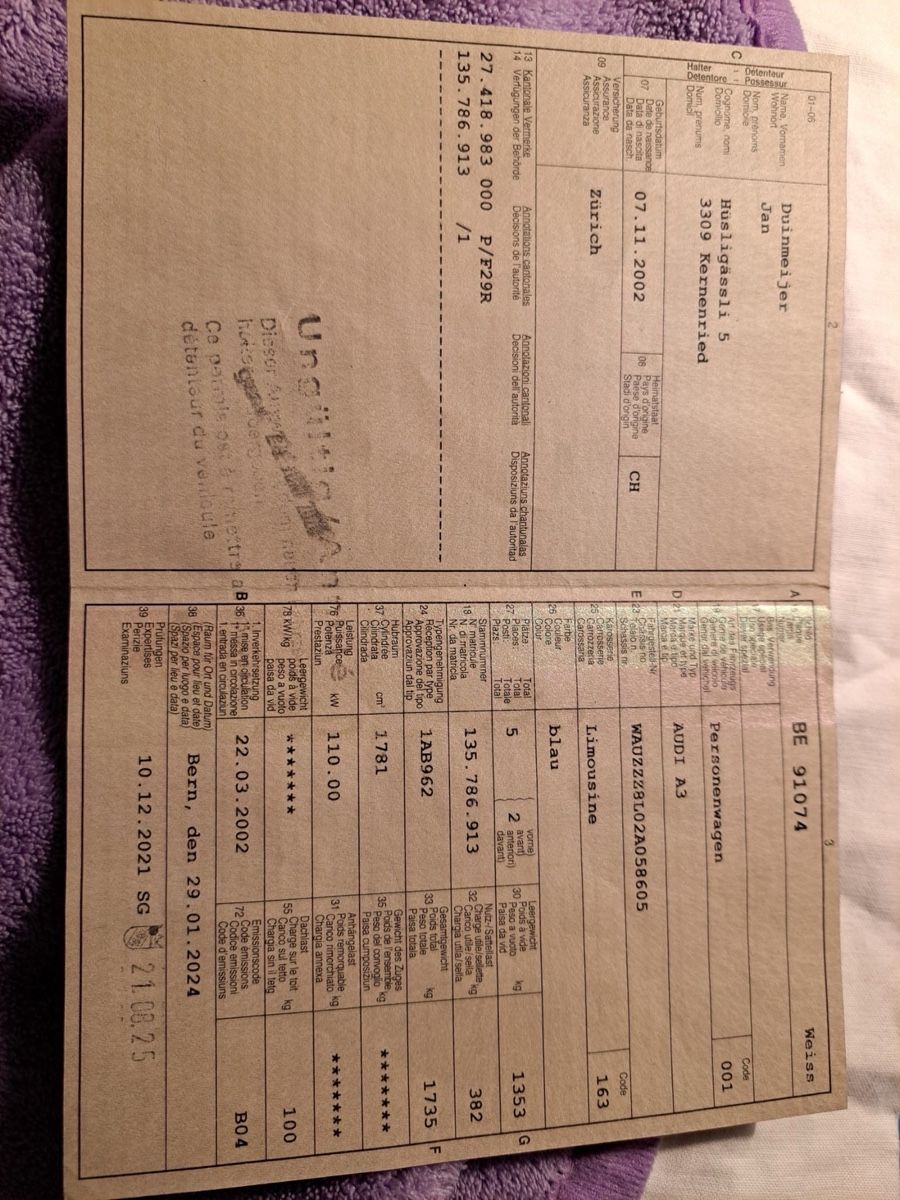 2
01-06
C
1.1
Halter
Détenteur
Detentore
Possessur
Name, Vornamen
Wohnort
Nom, prénoms
Domicile
Cognome, nomi
Domicilio
Num, prenums
Domicil
Duinmeijer
Jan
Hüsligässli 5
3309 Kernenried
07
Geburtsdatum
Date de naissance
Data di nascita
Data da nasch.
07.11.2002
08
Heimatstaat
Pays d'origine
Paese d'origine
Stadi d'origin
CH
09
Versicherung
Assurance
Assicurazione
Assicuranza
Zürich
13 Kantonale Vermerke
14 Verfügungen der Behörde
Annotations cantonales
Décisions de l'autorité
Annotazioni cantonali
Decisioni dell'autorità
Annotaziuns chantunalas
Disposiziuns da l'autoritad
27.418.983 000 P/F29R
135.786.913 /1
Ungültig
Ce permis est à
détenteur du véhicule
3
A
BE 91074
Weiss
Personenwagen
Code
001
D
21
Marke und Typ
Marque et type
Marca e tip
AUDI A3
E
23
WAUZZZ8L02A058605
25
Karosserie
Carrosserie
Carrozzeria
Carossaria
Limousine
Code
163
26
Farbe
Couleur
Colore
Colur
blau
27
Plätze Total
Places Total
Posti Totale
Plazs Total
5
2
vorne)
avant)
anteriori)
davant)
30
Leergewicht
Poids à vide
Peso a vuoto
Paisa da vid
kg
1353
G
18
Stammnummer
N° matricule
N. di matricola
Nr. da matricla
135.786.913
32
Nutz-/Sattellast
Charge utile/sellette
Carico utile/sella
Chargia utila/sella
kg
382
24
Typengenehmigung
Réception par type
Approvazione del tipo
Approvaziun dal tip
1AB962
33
Gesamtgewicht
Poids total
Peso totale
Paisa totala
kg
1735
F
37
Hubraum
Cylindrée
Cilindrata
Cilindrada
cm³
1781
35
Gewicht des Zuges
Poids de l'ensemble
Peso del convoglio
Paisa cumposiziun
kg
*******
76
Leistung
Puissance
Potenza
Prestaziun
kW
110.00
31
Anhängelast
Poids remorquable
Carico rimorchiato
Chargia annexa
kg
*******
78 kW/kg
Leergewicht
poids à vide
peso a vuoto
paisa da vid
*******
55
Dachlast
Charge sur le toit
Carico sul tetto
Chargia sin il tetg
kg
100
B
36
1. Inverkehrsetzung
1re mise en circulation
1a messa in circolazione
1. entrada en circulaziun
22.03.2002
72
Emissionscode
Code émissions
Codice emissioni
Code d'emissiuns
B04
38
(Raum für Ort und Datum)
(Espace pour lieu et date)
(Spazio per luogo e data)
(Spazi per lieu e data)
Bern, den 29.01.2024
39
Prüfungen
Expertises
Perizie
Examinaziuns
10.12.2021 SG
21.08.25